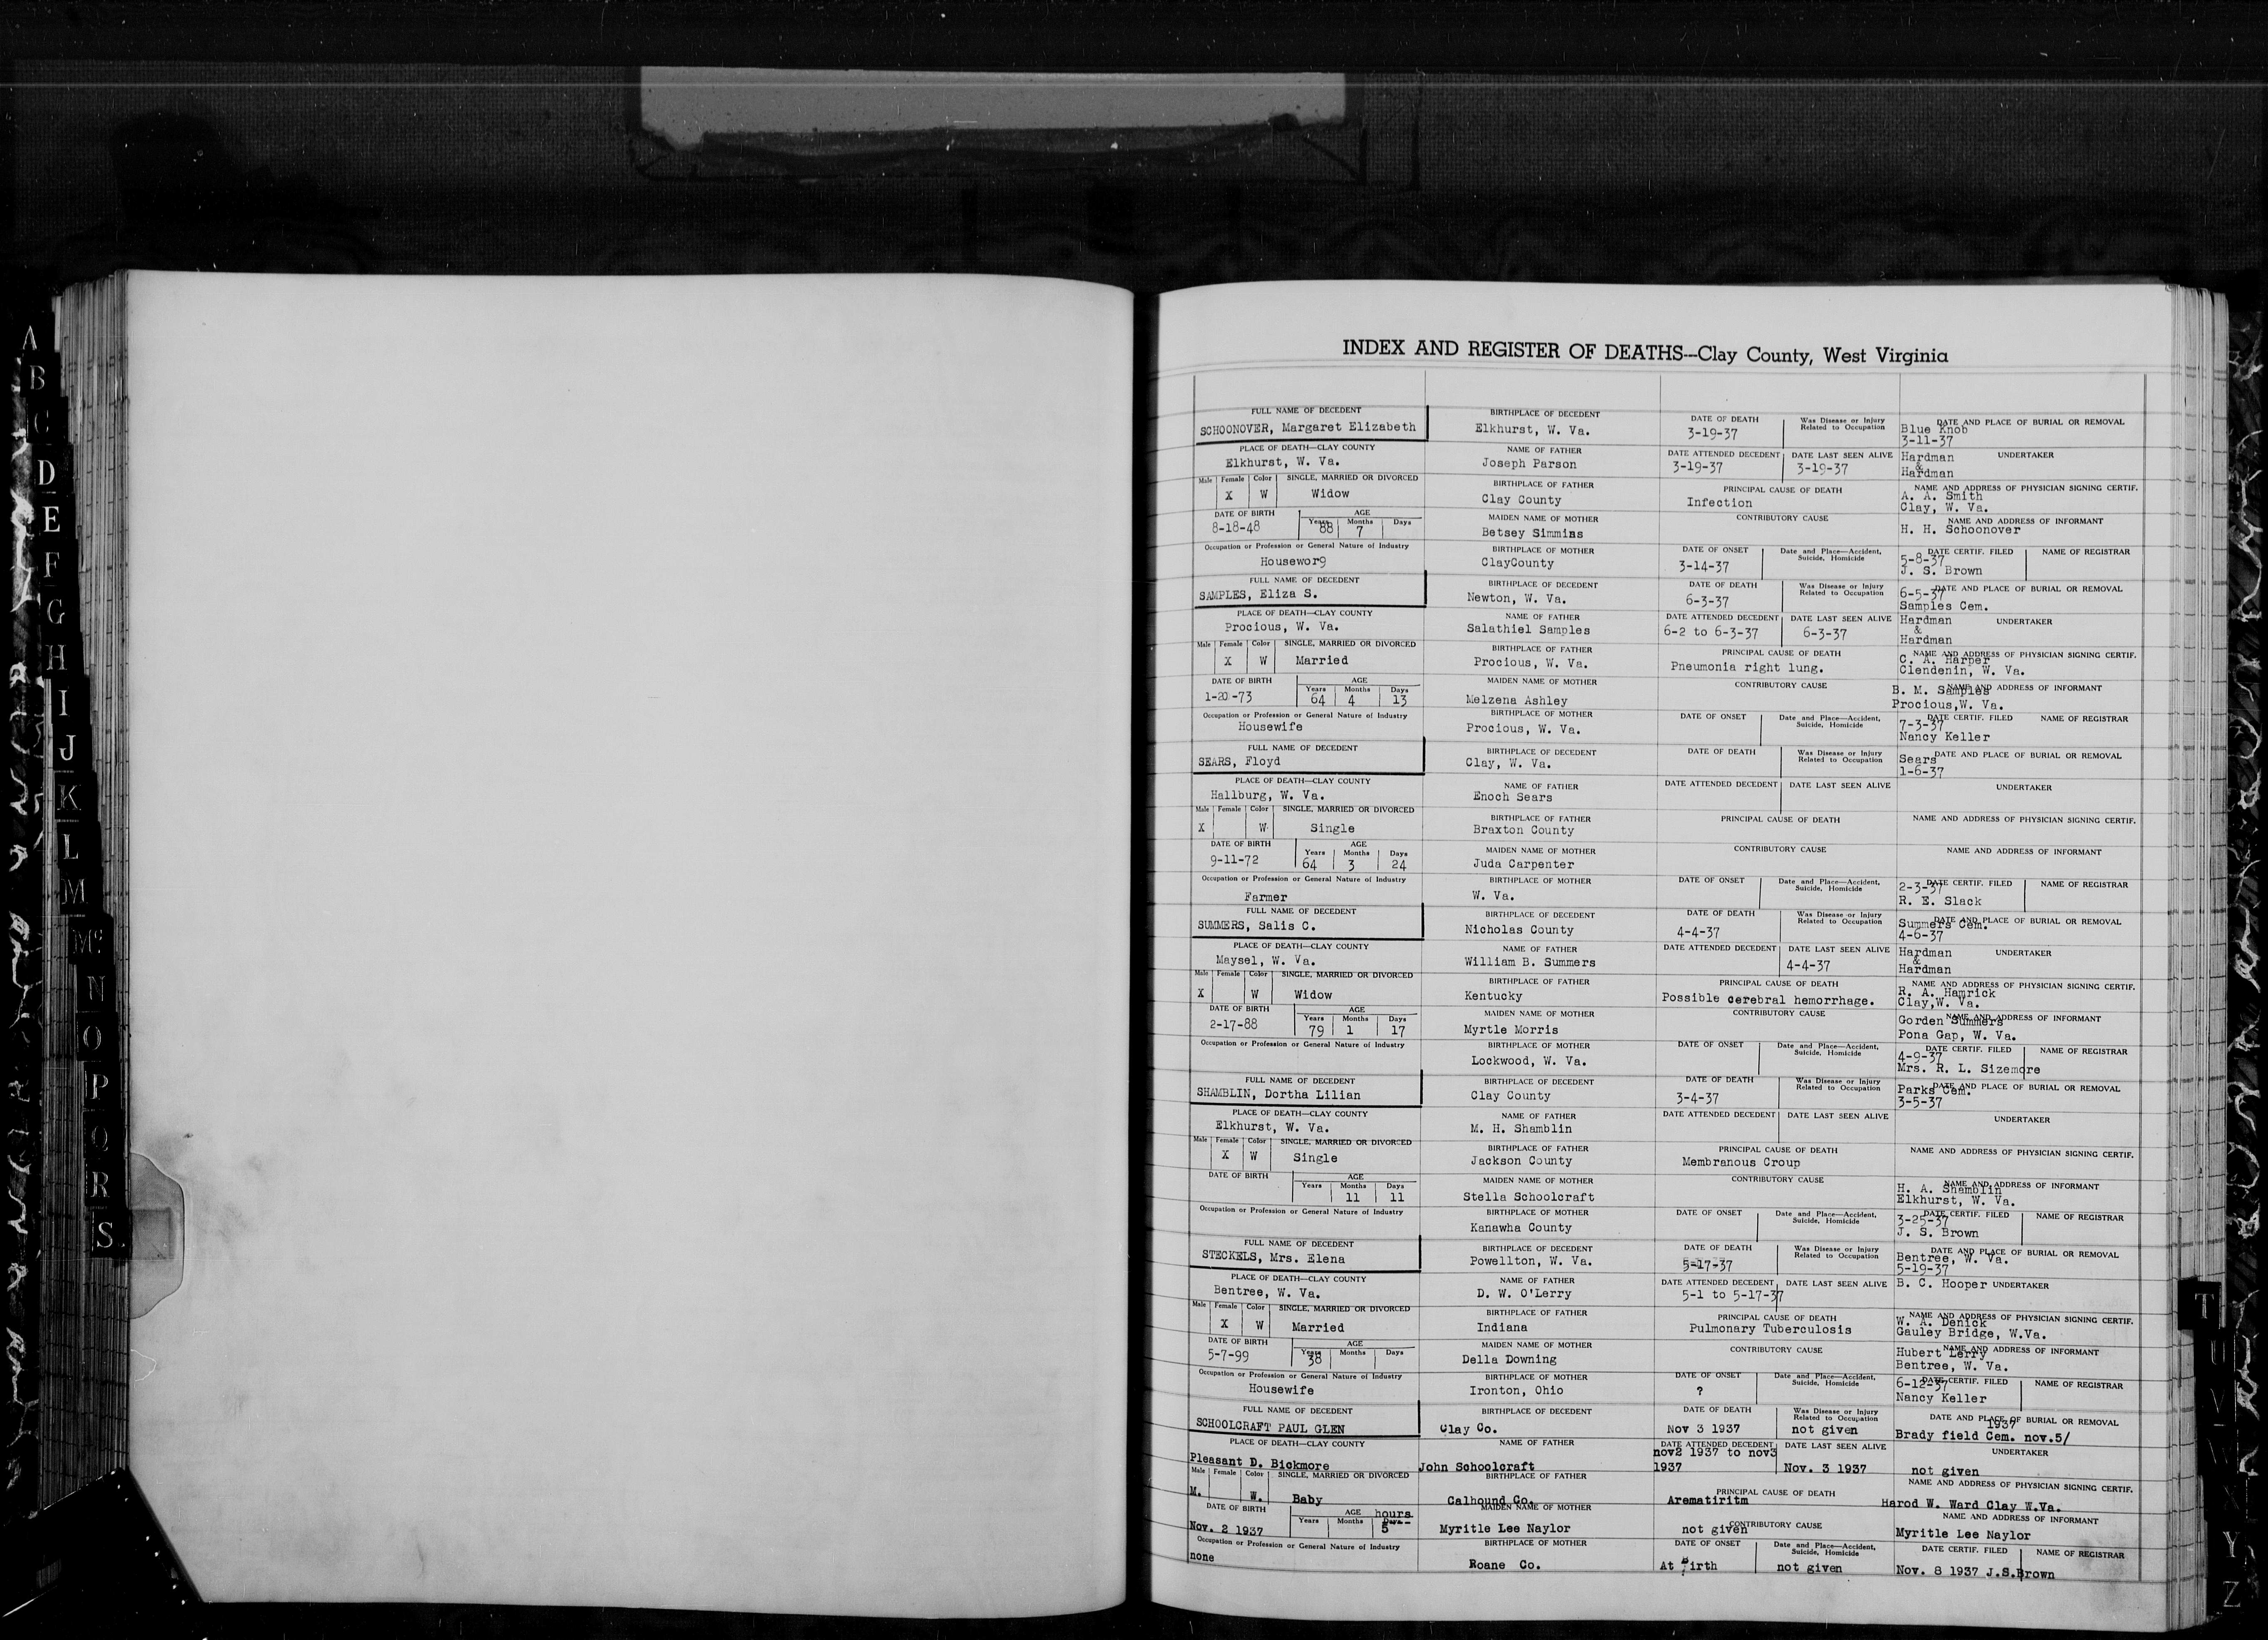 A
B
C
D
E
F
G
H
I
J
K
L
M
Mc
N
O
P
Q
R
S
INDEX AND REGISTER OF DEATHS—Clay County, West Virginia
FULL NAME OF DECEDENT BIRTHPLACE OF DECEDENT DATE OF DEATH Was Disease or Injury Related to Occupation DATE AND PLACE OF BURIAL OR REMOVAL
SCHOONOVER, Margaret Elizabeth Elkhurst, W. Va. 3-19-37 Blue Knob 3-11-37
PLACE OF DEATH—CLAY COUNTY NAME OF FATHER DATE ATTENDED DECEDENT DATE LAST SEEN ALIVE UNDERTAKER
Elkhurst, W. Va. Joseph Parson 3-19-37 3-19-37 Hardman & Hardman
Male Female Color SINGLE, MARRIED OR DIVORCED BIRTHPLACE OF FATHER PRINCIPAL CAUSE OF DEATH NAME AND ADDRESS OF PHYSICIAN SIGNING CERTIF.
X W Widow Clay County Infection A. A. Smith Clay, W. Va.
DATE OF BIRTH AGE Years Months Days MAIDEN NAME OF MOTHER CONTRIBUTORY CAUSE NAME AND ADDRESS OF INFORMANT
8-18-48 88 7 Betsey Simmins H. H. Schoonover
Occupation or Profession or General Nature of Industry BIRTHPLACE OF MOTHER DATE OF ONSET Date and Place—Accident, Suicide, Homicide DATE CERTIF. FILED NAME OF REGISTRAR
Housewor9 ClayCounty 3-14-37 5-8-37 J. S. Brown
FULL NAME OF DECEDENT BIRTHPLACE OF DECEDENT DATE OF DEATH Was Disease or Injury Related to Occupation DATE AND PLACE OF BURIAL OR REMOVAL
SAMPLES, Eliza S. Newton, W. Va. 6-3-37 6-5-37 Samples Cem.
PLACE OF DEATH—CLAY COUNTY NAME OF FATHER DATE ATTENDED DECEDENT DATE LAST SEEN ALIVE UNDERTAKER
Procious, W. Va. Salathiel Samples 6-2 to 6-3-37 6-3-37 Hardman & Hardman
Male Female Color SINGLE, MARRIED OR DIVORCED BIRTHPLACE OF FATHER PRINCIPAL CAUSE OF DEATH NAME AND ADDRESS OF PHYSICIAN SIGNING CERTIF.
X W Married Procious, W. Va. Pneumonia right lung. C. A. Harper Clendenin, W. Va.
DATE OF BIRTH AGE Years Months Days MAIDEN NAME OF MOTHER CONTRIBUTORY CAUSE NAME AND ADDRESS OF INFORMANT
1-20-73 64 4 13 Melzena Ashley B. M. Samples Procious,W. Va.
Occupation or Profession or General Nature of Industry BIRTHPLACE OF MOTHER DATE OF ONSET Date and Place—Accident, Suicide, Homicide DATE CERTIF. FILED NAME OF REGISTRAR
Housewife Procious, W. Va. 7-3-37 Nancy Keller
FULL NAME OF DECEDENT BIRTHPLACE OF DECEDENT DATE OF DEATH Was Disease or Injury Related to Occupation DATE AND PLACE OF BURIAL OR REMOVAL
SEARS, Floyd Clay, W. Va. Sears 1-6-37
PLACE OF DEATH—CLAY COUNTY NAME OF FATHER DATE ATTENDED DECEDENT DATE LAST SEEN ALIVE UNDERTAKER
Hallburg, W. Va. Enoch Sears
Male Female Color SINGLE, MARRIED OR DIVORCED BIRTHPLACE OF FATHER PRINCIPAL CAUSE OF DEATH NAME AND ADDRESS OF PHYSICIAN SIGNING CERTIF.
X W Single Braxton County
DATE OF BIRTH AGE Years Months Days MAIDEN NAME OF MOTHER CONTRIBUTORY CAUSE NAME AND ADDRESS OF INFORMANT
9-11-72 64 3 24 Juda Carpenter
Occupation or Profession or General Nature of Industry BIRTHPLACE OF MOTHER DATE OF ONSET Date and Place—Accident, Suicide, Homicide DATE CERTIF. FILED NAME OF REGISTRAR
Farmer W. Va. 2-3-37 R. E. Slack
FULL NAME OF DECEDENT BIRTHPLACE OF DECEDENT DATE OF DEATH Was Disease or Injury Related to Occupation DATE AND PLACE OF BURIAL OR REMOVAL
SUMMERS, Salis C. Nicholas County 4-4-37 Summers Cem. 4-6-37
PLACE OF DEATH—CLAY COUNTY NAME OF FATHER DATE ATTENDED DECEDENT DATE LAST SEEN ALIVE UNDERTAKER
Maysel, W. Va. William B. Summers 4-4-37 Hardman & Hardman
Male Female Color SINGLE, MARRIED OR DIVORCED BIRTHPLACE OF FATHER PRINCIPAL CAUSE OF DEATH NAME AND ADDRESS OF PHYSICIAN SIGNING CERTIF.
X W Widow Kentucky Possible cerebral hemorrhage. R. A. Hamrick Clay,W. Va.
DATE OF BIRTH AGE Years Months Days MAIDEN NAME OF MOTHER CONTRIBUTORY CAUSE NAME AND ADDRESS OF INFORMANT
2-17-88 79 1 17 Myrtle Morris Gorden Summers Pona Gap, W. Va.
Occupation or Profession or General Nature of Industry BIRTHPLACE OF MOTHER DATE OF ONSET Date and Place—Accident, Suicide, Homicide DATE CERTIF. FILED NAME OF REGISTRAR
Lockwood, W. Va. 4-9-37 Mrs. R. L. Sizemore
FULL NAME OF DECEDENT BIRTHPLACE OF DECEDENT DATE OF DEATH Was Disease or Injury Related to Occupation DATE AND PLACE OF BURIAL OR REMOVAL
SHAMBLIN, Dortha Lilian Clay County 3-4-37 Parks Cem. 3-5-37
PLACE OF DEATH—CLAY COUNTY NAME OF FATHER DATE ATTENDED DECEDENT DATE LAST SEEN ALIVE UNDERTAKER
Elkhurst, W. Va. M. H. Shamblin
Male Female Color SINGLE, MARRIED OR DIVORCED BIRTHPLACE OF FATHER PRINCIPAL CAUSE OF DEATH NAME AND ADDRESS OF PHYSICIAN SIGNING CERTIF.
X W Single Jackson County Membranous Croup
DATE OF BIRTH AGE Years Months Days MAIDEN NAME OF MOTHER CONTRIBUTORY CAUSE NAME AND ADDRESS OF INFORMANT
11 11 Stella Schoolcraft H. A. Shamblin Elkhurst, W. Va.
Occupation or Profession or General Nature of Industry BIRTHPLACE OF MOTHER DATE OF ONSET Date and Place—Accident, Suicide, Homicide DATE CERTIF. FILED NAME OF REGISTRAR
Kanawha County 3-25-37 J. S. Brown
FULL NAME OF DECEDENT BIRTHPLACE OF DECEDENT DATE OF DEATH Was Disease or Injury Related to Occupation DATE AND PLACE OF BURIAL OR REMOVAL
STECKELS, Mrs. Elena Powellton, W. Va. 5-17-37 Bentree, W. Va. 5-19-37
PLACE OF DEATH—CLAY COUNTY NAME OF FATHER DATE ATTENDED DECEDENT DATE LAST SEEN ALIVE UNDERTAKER
Bentree, W. Va. D. W. O'Lerry 5-1 to 5-17-37 B. C. Hooper
Male Female Color SINGLE, MARRIED OR DIVORCED BIRTHPLACE OF FATHER PRINCIPAL CAUSE OF DEATH NAME AND ADDRESS OF PHYSICIAN SIGNING CERTIF.
X W Married Indiana Pulmonary Tuberculosis W. A. Denick Gauley Bridge, W.Va.
DATE OF BIRTH AGE Years Months Days MAIDEN NAME OF MOTHER CONTRIBUTORY CAUSE NAME AND ADDRESS OF INFORMANT
5-7-99 38 Della Downing Hubert Lerry Bentree, W. Va.
Occupation or Profession or General Nature of Industry BIRTHPLACE OF MOTHER DATE OF ONSET Date and Place—Accident, Suicide, Homicide DATE CERTIF. FILED NAME OF REGISTRAR
Housewife Ironton, Ohio ? 6-12-37 Nancy Keller
FULL NAME OF DECEDENT BIRTHPLACE OF DECEDENT DATE OF DEATH Was Disease or Injury Related to Occupation DATE AND PLACE OF BURIAL OR REMOVAL
SCHOOLCRAFT PAUL GLEN Clay Co. Nov 3 1937 not given Brady field Cem. nov.5/ 1937
PLACE OF DEATH—CLAY COUNTY NAME OF FATHER DATE ATTENDED DECEDENT DATE LAST SEEN ALIVE UNDERTAKER
Pleasant D. Bickmore John Schoolcraft nov2 1937 to nov3 1937 Nov. 3 1937 not given
Male Female Color SINGLE, MARRIED OR DIVORCED BIRTHPLACE OF FATHER PRINCIPAL CAUSE OF DEATH NAME AND ADDRESS OF PHYSICIAN SIGNING CERTIF.
M. W. Baby Calhound Co. Arematiritm Harod W. Ward Clay W.Va.
DATE OF BIRTH AGE hours Years Months Days MAIDEN NAME OF MOTHER CONTRIBUTORY CAUSE NAME AND ADDRESS OF INFORMANT
Nov. 2 1937 5 Myritle Lee Naylor not given Myritle Lee Naylor
Occupation or Profession or General Nature of Industry BIRTHPLACE OF MOTHER DATE OF ONSET Date and Place—Accident, Suicide, Homicide DATE CERTIF. FILED NAME OF REGISTRAR
none Roane Co. At Birth not given Nov. 8 1937 J.S.Brown
T
U
V
Y
Z